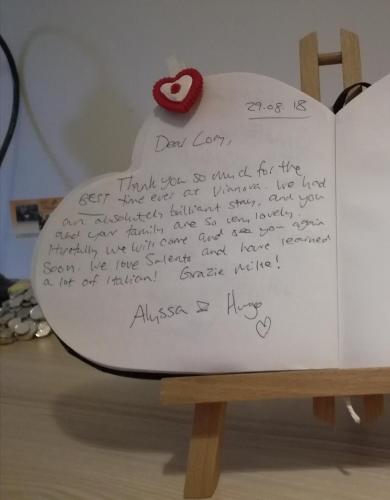 29.08.18
Dear Lory,
Thank you so much for the
BEST time ever at Vianova. We had
an absolutely brilliant stay, and you
and your family are so very lovely.
Hopefully we will come and see you again
soon. We love Salento and have learned
a lot of Italian! Grazie mille!
Alyssa & Hugo